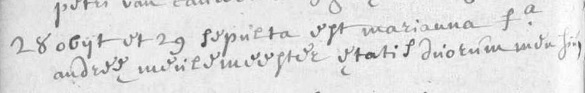 petri van
28 obijt et 29 sepulta est marianna f.a
andreę meulemeester ętatis duorum mensiũ